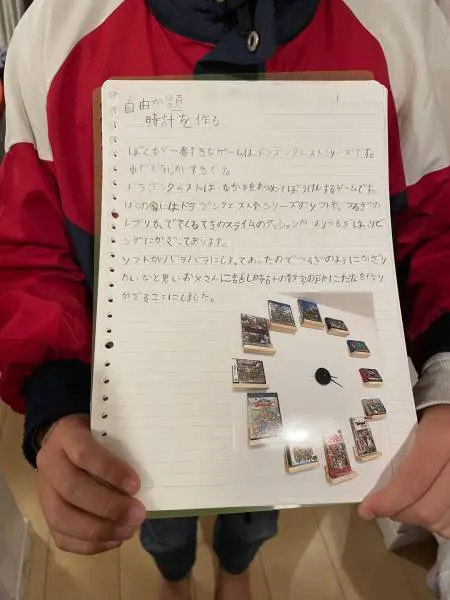 自由か題
1
時計を作る
ぼくが一番すきなゲームは、ドラゴンクエストシリーズです。
中でも がすきです。
ドラゴンクエストは、なかまをあつめてぼうけんするゲームです。
ぼくの家にはドラゴンクエスト全シリーズのソフトや、つるぎの
レプリカ、でてくるてきのスライムのクッションがありつるぎは、リビ
ングにかざってあります。
ソフトがバラバラにしまってあったのでつるぎのようにかざり
たいなと思いお父さんに話し時計の数字の所にたなを作り
かざることにしました。